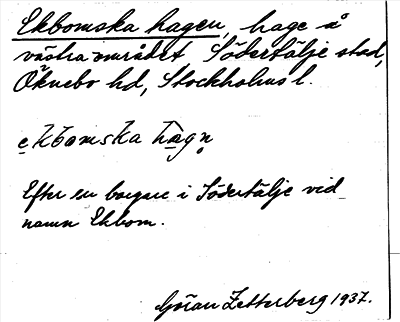 Ekbomska hagen, hage å
västra området Södertälje stad,
Öknebo hd, Stockholms l.
ekbomska hagn
Efter en borgare i Södertälje vid
namn Ekbom.
Göran Zetterberg 1937.